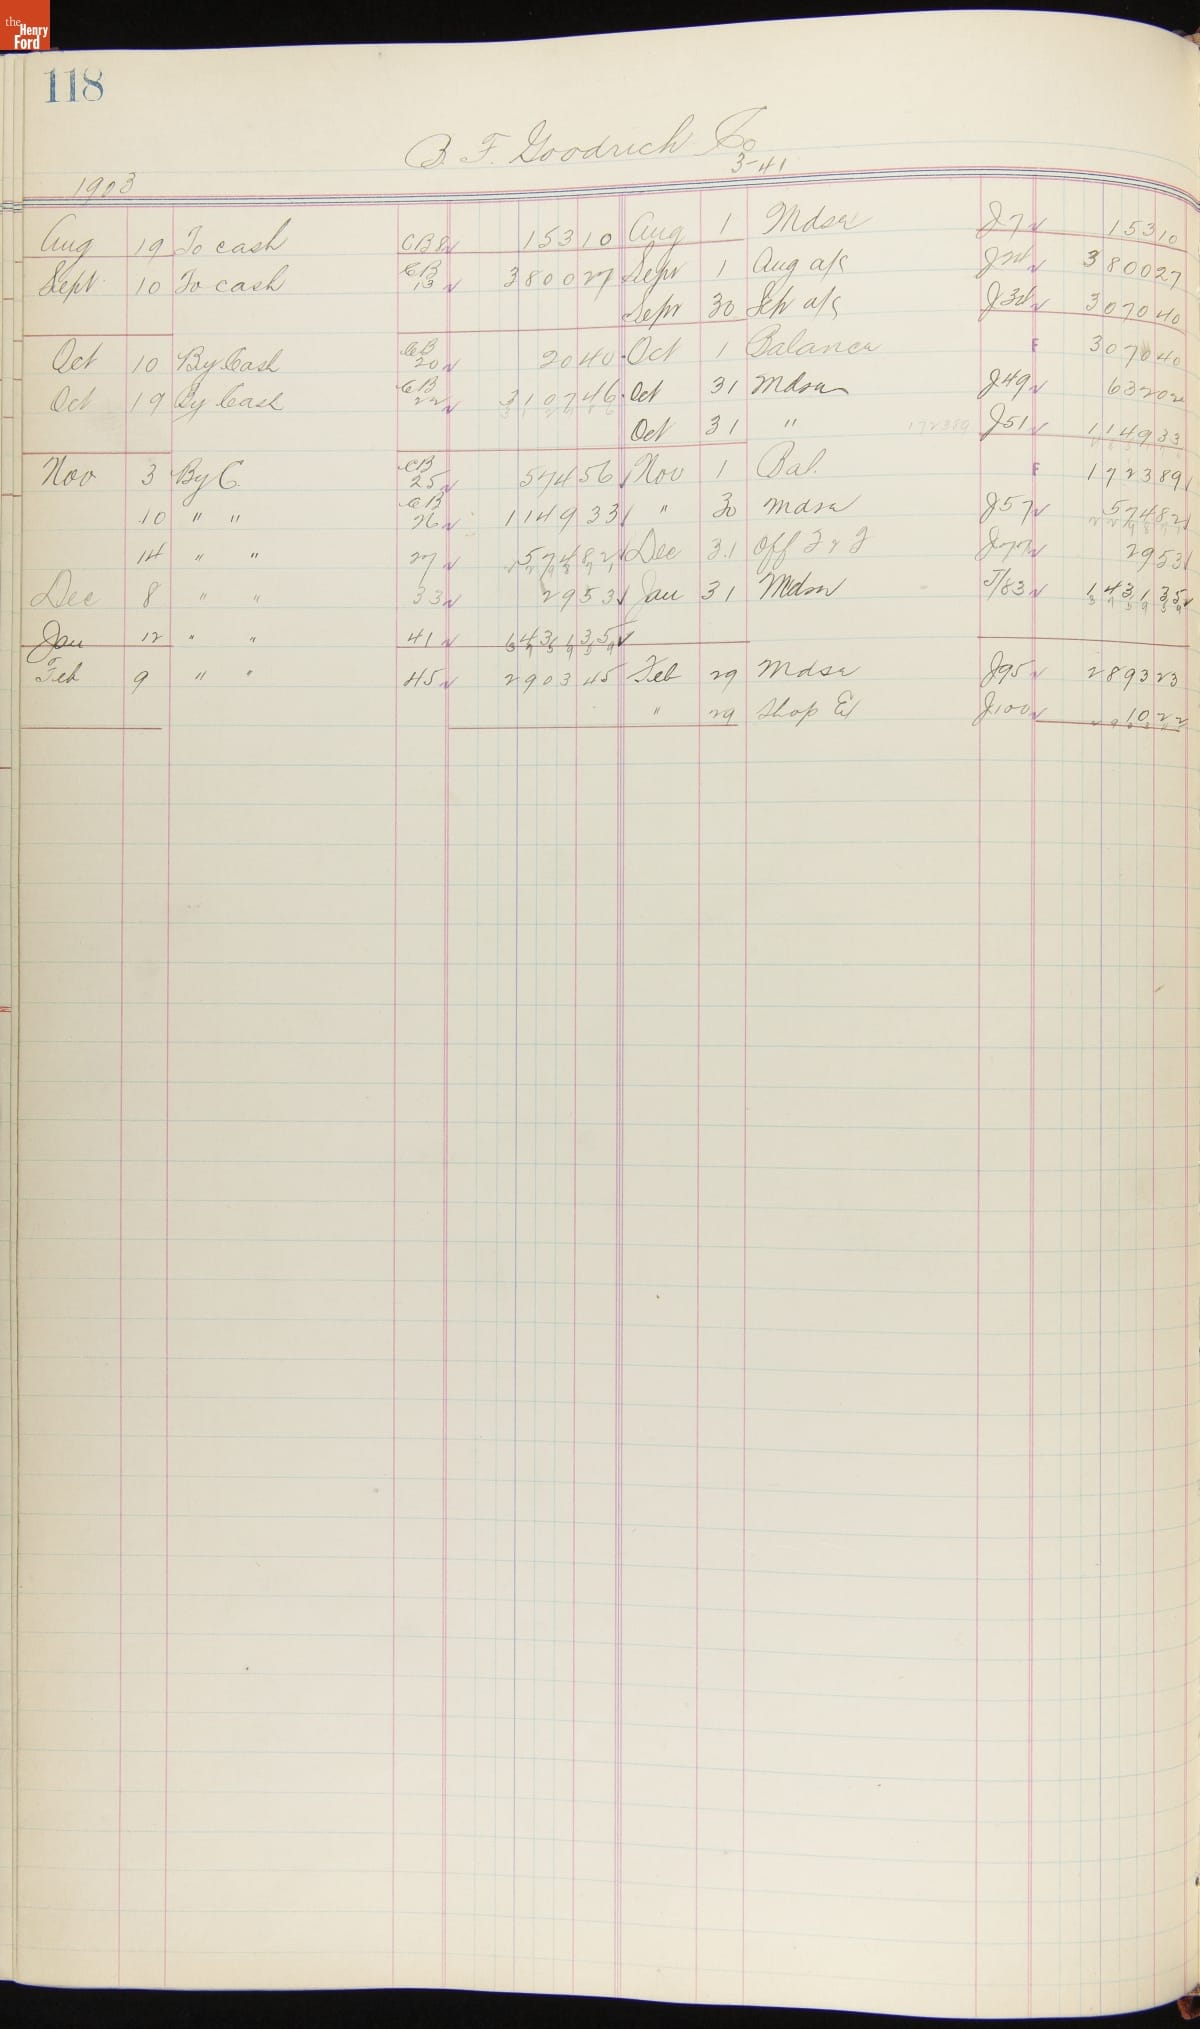 the Henry Ford
118
B. F. Goodrich Co
3-41
1903
Aug 19 To cash CB8 153 10 Aug 1 Mdse J7 153 10
Sept 10 To cash CB 13 3800 27 Sept 1 Aug a/c J22 3800 27
Sept 30 Sep a/c J32 3070 40
Oct 10 By Cash CB 20 20 40 Oct 1 Balance F 3070 40
Oct 19 By Cash CB 22 3107 46 Oct 31 Mdse J49 632 02
Oct 31 " 1723 89 J51 1149 33
Nov 3 By C. CB 25 574 56 Nov 1 Bal. F 1723 89
10 " " CB 26 1149 33 " 30 Mdse J57 574 82
14 " " 27 574 82 Dec 31 Off F & F J77 29 53
Dec 8 " " 33 29 53 Jan 31 Mdse J/83 1431 35
Jan 12 " " 41 1431 35
Feb 9 " " 45 2903 45 Feb 29 Mdse J95 2893 23
" 29 Shop Ex J100 10 22